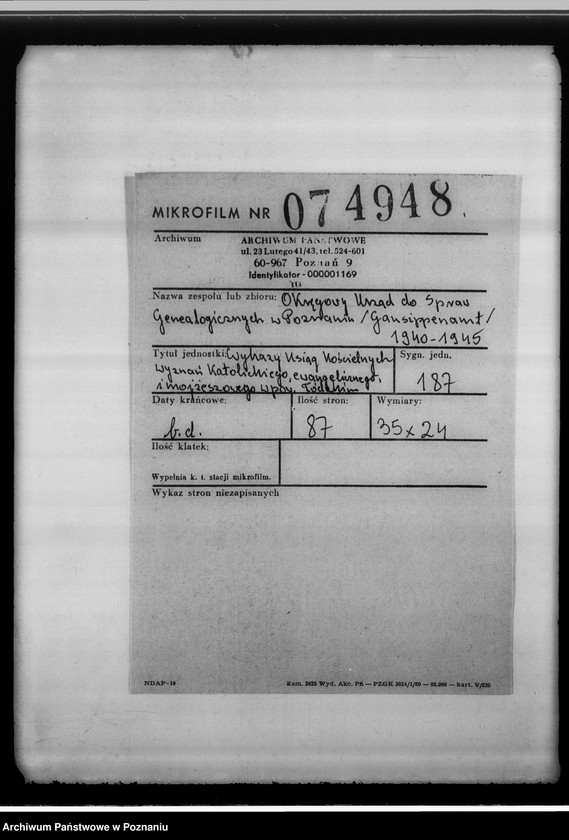 MIKROFILM NR 074948.
Archiwum
ARCHIWUM PAŃSTWOWE
ul. 23 Lutego 41/43, tel. 524-601
60-967 Poznań 9
Identyfikator - 000001169
Nazwa zespołu lub zbioru: Okręgowy Urząd do Spraw
Genealogicznych w Poznaniu /Gausippenamt/
1940-1945
Tytuł jednostki: Wykazy Ksiąg Kościelnych
wyznań Katolickiego, ewangelickiego,
i mojżeszowego w pow. Łódzkim
Sygn. jedn.
187
Daty krańcowe:
b.d.
Ilość stron:
87
Wymiary:
35x24
Ilość klatek:
Wypełnia k. t. stacji mikrofilm.
Wykaz stron niezapisanych
NDAP-19
Zam. 2625 Wyd. Akc. Pń — PZGK
Archiwum Państwowe w Poznaniu